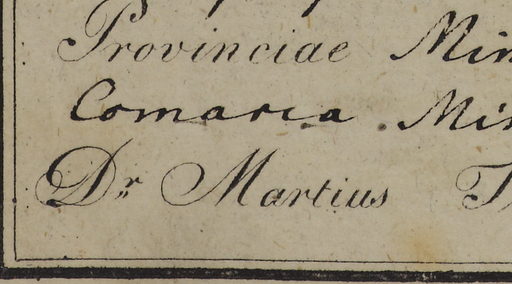 Provinciae Min
Comarca Min
Dr Martius